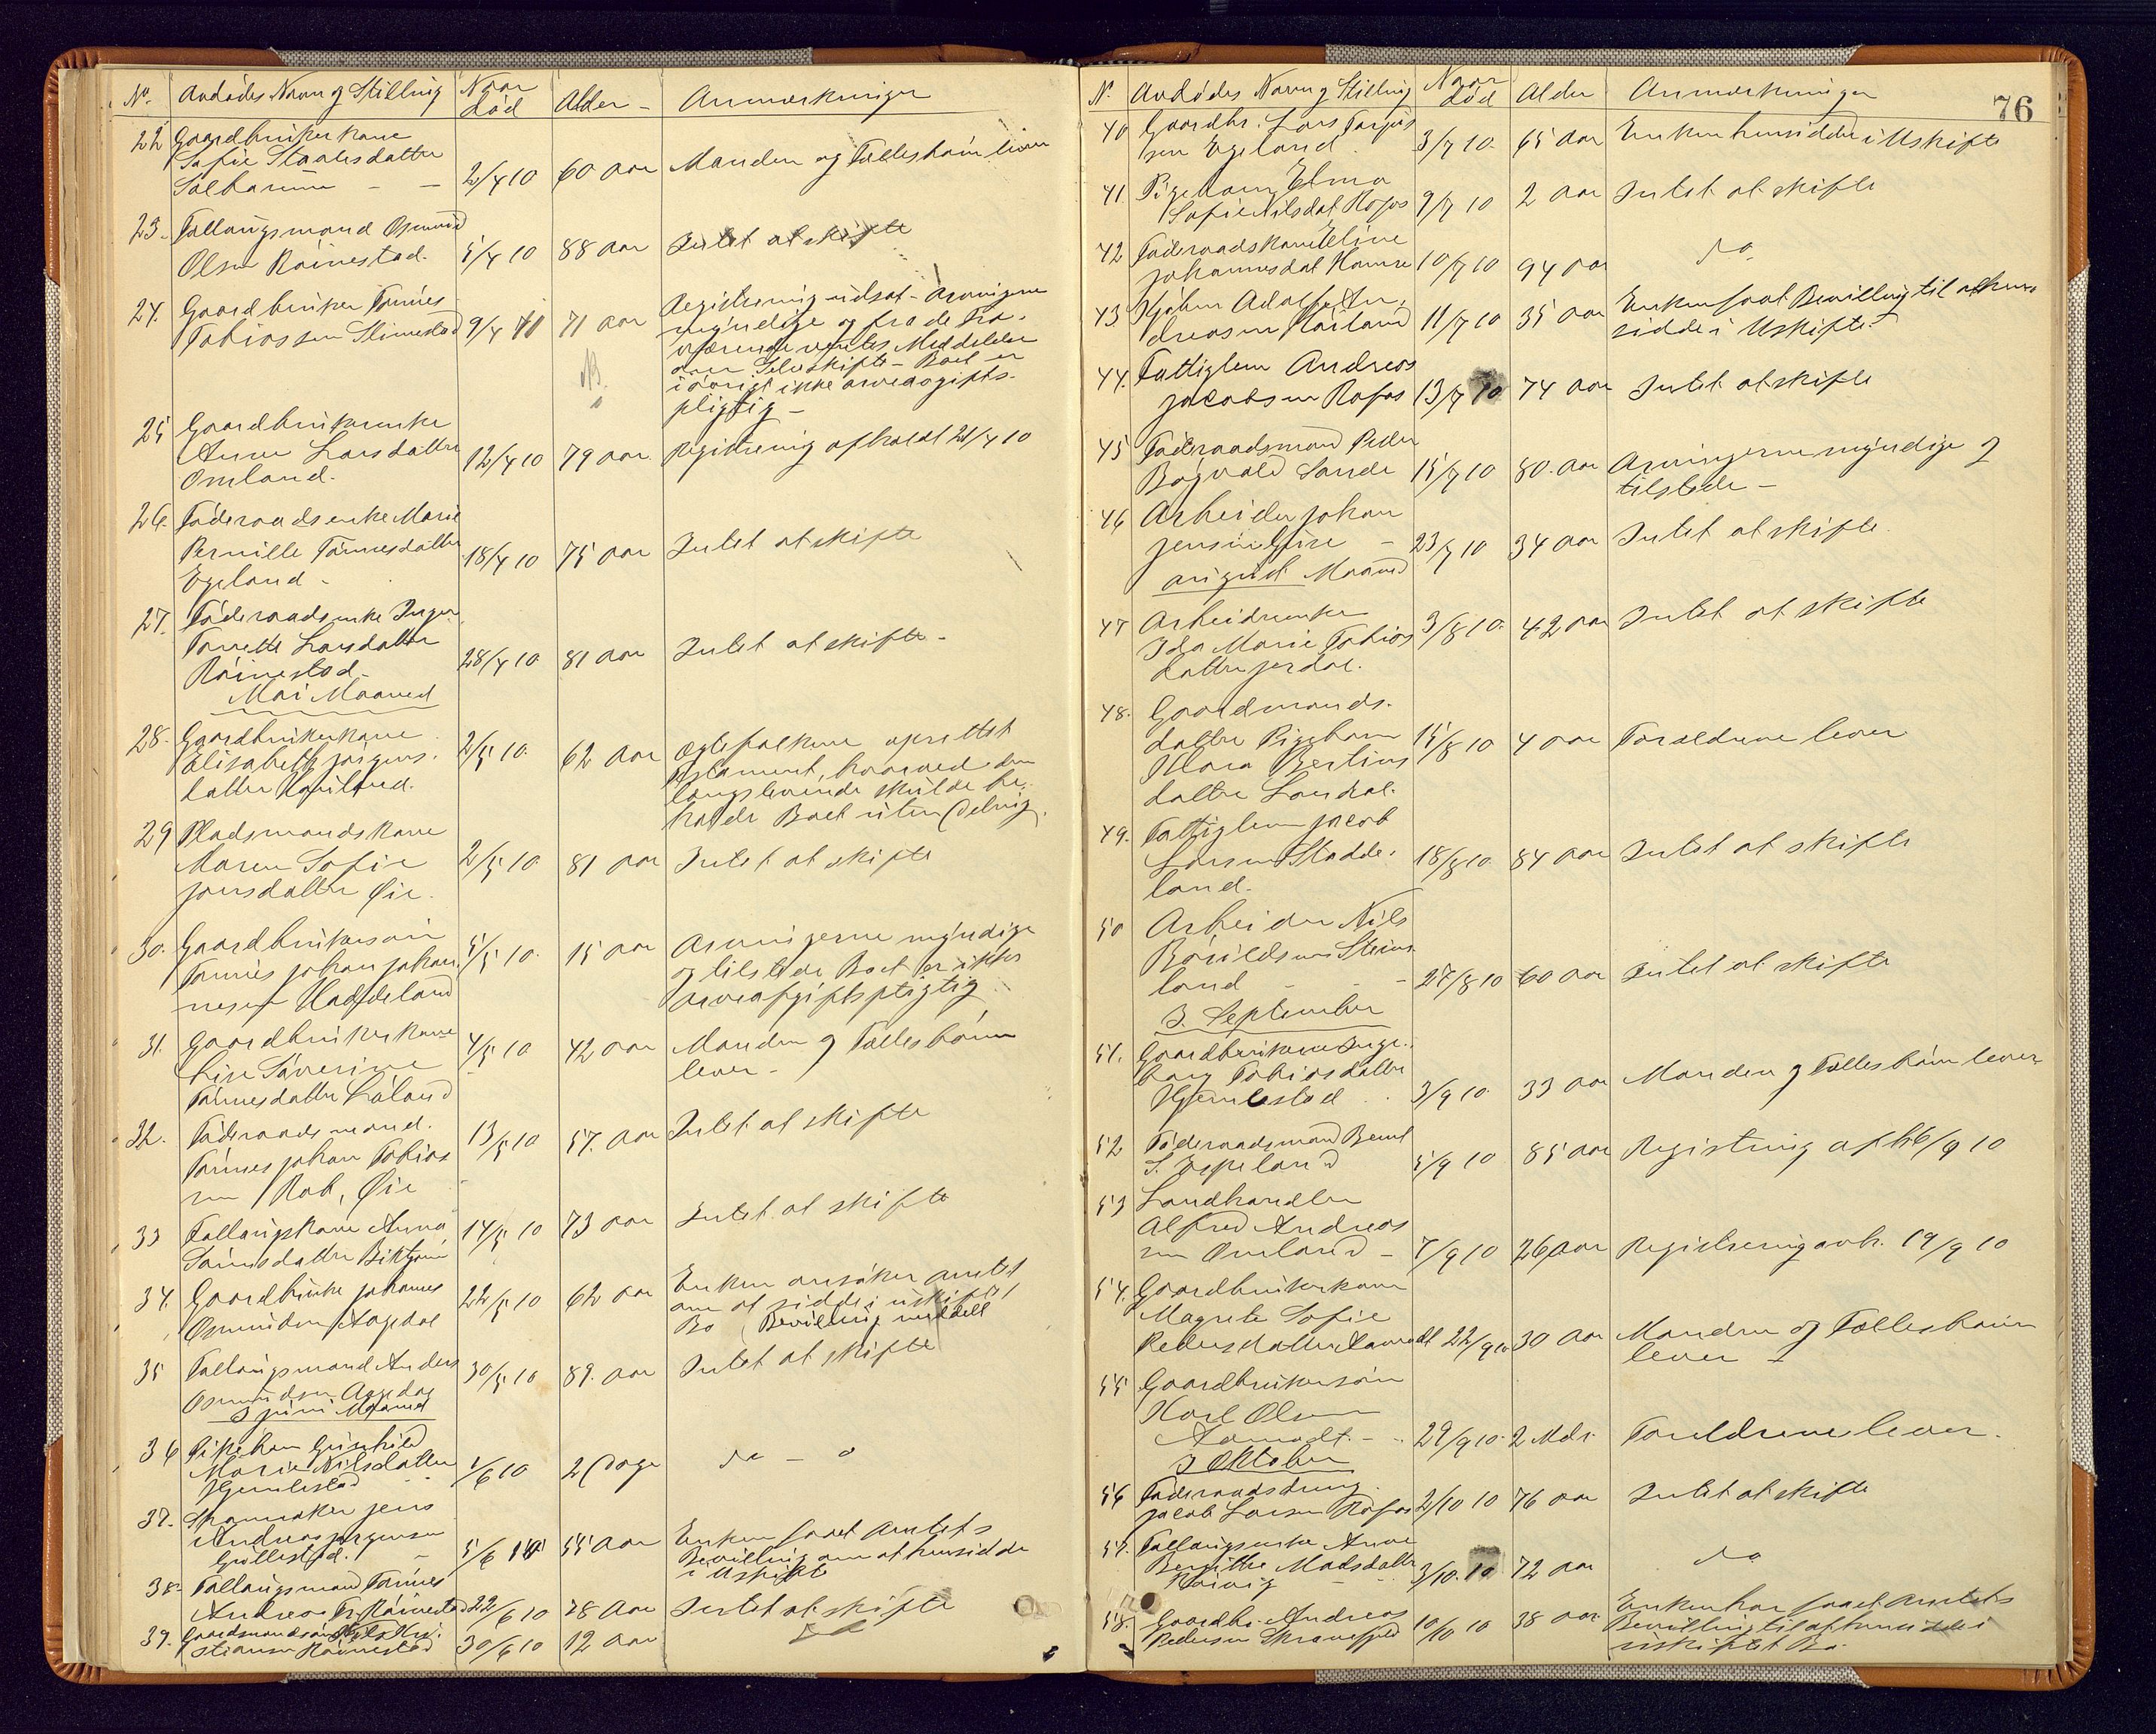 No. Avdødes Navn og Stilling Naar død Alder - Anmerkninger
22 Gaardbrukerkone
Sofie Staalesdatter
- - 2/4 10 60 aar Manden og Fællesbørn lever
23. Follaugsmand Osmund
Olsen Røinestad. 5/4 10 88 aar Intet at skifte
24. Gaardbruker Tønnes
Tobiassen 9/4 10 71 aar Registrering utsat - Arvingerne
myndige og fra de fra-
værende ventes Meddelelse
om Selvskifte - Boet er
iøvrigt ikke arveavgifts-
pligtig -
25 Gaardbrukerenke
Anne Larsdatter
Omland. 12/4 10 79 aar. Registrering afholdt 21/4 10
26. Føderaadsenke Marie
Pernille Tønnesdatter
Egeland - 18/4 10 75 aar Intet at skifte
27. Føderaadsenke Inger
Tonette Larsdatter
Røinestad - 28/4 10 81 aar Intet at skifte -
Mai Maaned
28. Gaardbrukerkone
Elisabeth Jørgens-
datter 2/5 10. 62 aar Egtefolkene oprettet
Testament, hvorved den
længstlevende skulde be-
holde Boet uten Deling.
29 Pladsmandskone
Maren Sofie
Jonsdatter Øie. 2/5 10. 81 aar Intet at skifte
30. Gaardbrukersøn
Tønnes Johan Johan-
nesen Haddeland 5/5 10. 15 aar Arvingerne myndige
og tilstede Boet er ikke
arveafgiftspligtig
31. Gaardbrukerkone
Lise Severine
Tønnesdatter Løland 4/5 10 42 aar Manden og Fællesbørn
lever -
32. Føderaadsmand.
Tønnes Johan Tobias
sen Rob, Øie 13/5 10 57. aar Intet at skifte
33 Follaugskone Anna
Tønnesdatter 14/5 10 73 aar Intet at skifte
34. Gaardbruker Johannes
Osmundsen Aagedal 22/5 10 62 aar Enken ansøker Amtet
om at sidde i uskiftet
Bo (Bevilling meddelt
35 Follaugsmand Anders
Osmundsen Aagedal 30/5 10 89. aar Intet at skifte
I Juni Maaned
36 Pikebarn Gunhild
Marie Nilsdatter
Hjemlestad 1/6 10 2 Dage do - o
37. Skomaker Jens
Andreas Jørgensen
5/6 10 55 aar Enken faaet Amtets
Bevilling om at hensidde
i Uskifte
38. Follaugsmand Tønnes
Andreas Røinestad 22/6 10 28 aar Intet at skifte
39. Gaardmandssøn Nils Kri-
stiansen Røinestad 30/6 10 12 aar do
76
N. Avdødes Navn og Stilling Naar død Alder Anmærkninger
40 Gaardbr. Lars Tarjes
sen Egeland. 3/7 10. 65 aar Enken hensidder i Uskifte
41. Pigebarn Elma
Sofie Nilsdat. Rosfos 9/7 10 2 aar Intet at skifte
42 Føderaadskone Eline
Johannesdat. Hamre 10/7 10 94 aar do
43 Adolf An-
dreasen 11/7 10 35 aar Enken faat Bevilling til at hen-
sidde i Uskifte
44. Fattiglem Andreas
Jacobsen Rosfos 13/7 10 74 aar Intet at skifte
45 Føderaadsmand Peder
Bøgvald Sande 15/7 10 80. aar Arvingerne myndige og
tilstede -
46 Arbeider Johan
Jensen - 23/7 10 34 aar Intet at skifte.
August Maaned
47 Arbeiderenke
Ida Marie Tobias
datter Jerdal. 3/8 10. 42 aar Intet at skifte
48. Gaardmands-
datter Pigebarn
Klara Bertins
datter Landdal. 15/8 10 4 aar Forældrene lever
49. Fattiglem Jacob
Larsen Stadde-
land. 18/8 10. 84 aar Intet at skifte
50 Arbeider Nils
Bårildsen Steins-
land - - 27/8 10 60 aar Intet at skifte
I. September
51. Gaardbrukerkone Inge-
borg Tobiasdatter
Hjemlestad . . 3/9 10. 33 aar Manden og Fællesbørn lever
52 Føderaadsmand Bernt
S. Espeland 5/9 10 85 aar Registrering afh. 6/9 10
53 Landhandler
Alfred Andreas
sen Omland - 7/9 10 26 aar Registrering avh. 19/9 10
54. Gaardbrukerkone
Magrete Sofie
Pedersdatter Aamodt 22/9 10 30 aar Manden og Fællesbørn
lever -
55 Gaardbrukersøn
Karl Olsen
Aamodt. - . 29/9 10. 2 Mdr. Forældrene lever.
I Oktober
56 Føderaadsdreng
Jacob Larsen Rosfos 2/10 10 76 aar Intet at skifte
57. Follaugsenke Anne
Bergitte Madsdatter
3/10. 10 72 aar do
58. Gaardbr. Andreas
Pedersen 10/10 10 38 aar. Enken har faaet Amtets
Bevilling til at hensidde i
uskiftet Bo.